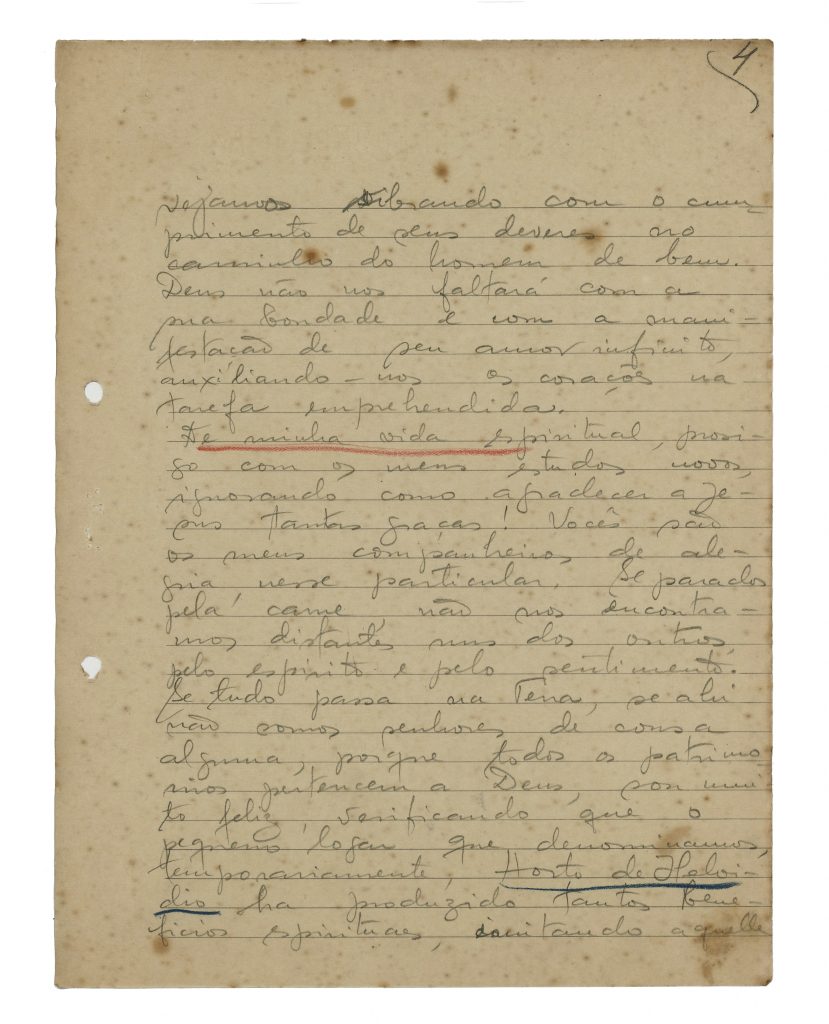 4
vejamos vibrando com o cum-
primento de seus deveres no
caminho do homem de bem.
Deus não nos faltará com a
sua bondade e com a mani-
festação de seu amor infinito,
auxiliando-nos os corações na
tarefa emprehendida.
De minha vida espiritual, prosi-
go com os meus estudos novos,
ignorando como agradecer a Je-
sus tantas graças! Vocês são
os meus companheiros de ale-
gria, nesse particular. Separados
pela carne, não nos encontra-
mos distantes uns dos outros,
pelo espirito e pelo sentimento.
Se tudo passa na Terra, se ahi
não somos senhores de cousa
alguma, porque todos os patrimo-
nios pertencem a Deus, sou mui
to feliz, verificando que o
pequeno logar que denominamos,
temporariamente, Horto de Helvi-
dio ha produzido tantos bene-
ficios espirituaes, imitando aquelle